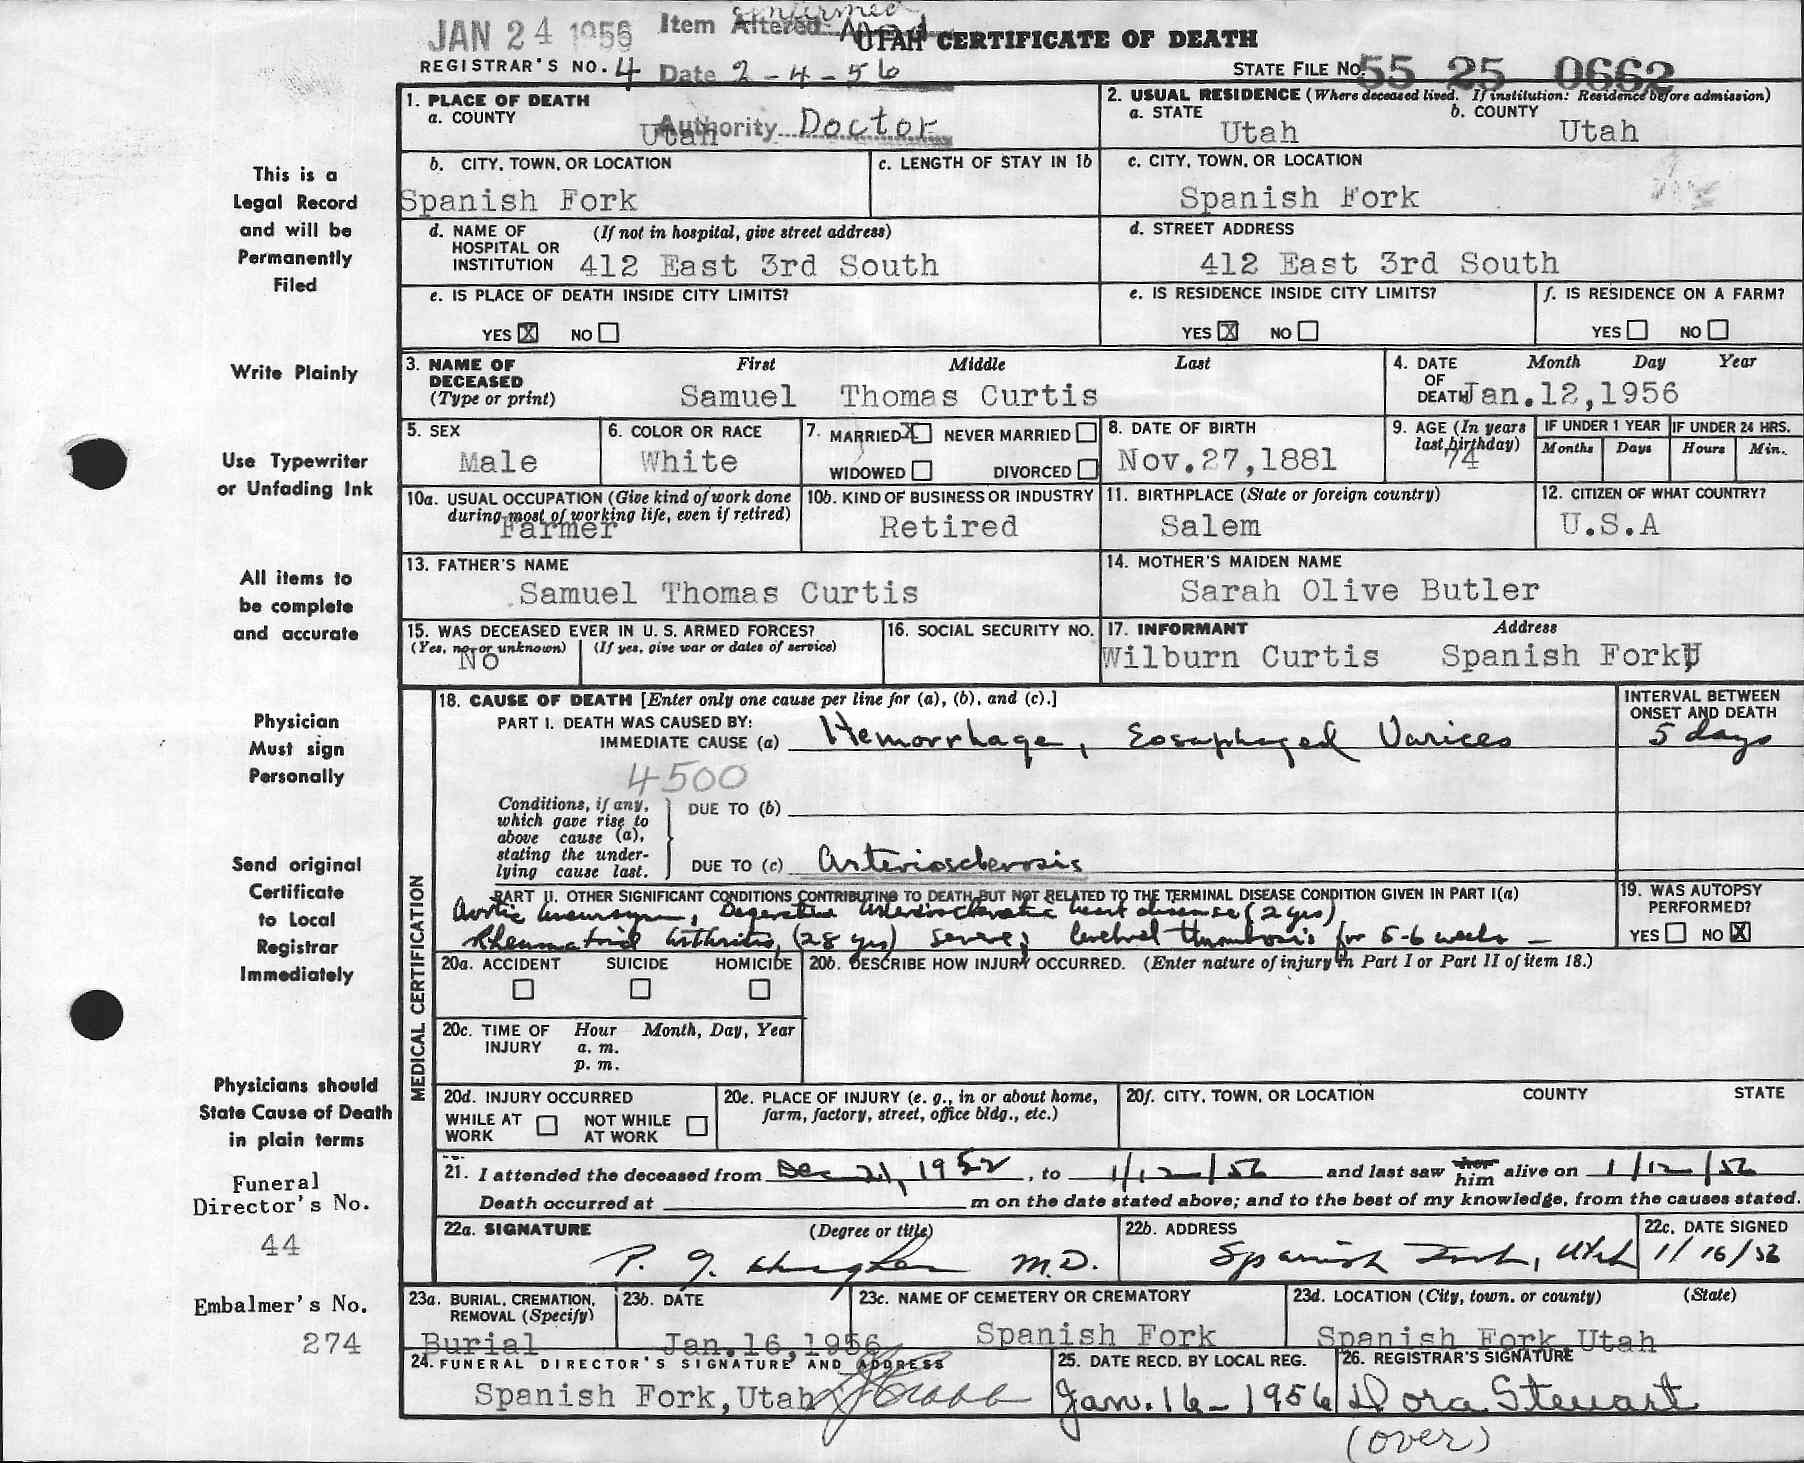 JAN 24 1956 Item Altered confirmed UTAH CERTIFICATE OF DEATH
REGISTRAR'S NO. 4 Date 2-4-56 STATE FILE NO. 55 25 0662
1. PLACE OF DEATH
a. COUNTY
Utah Authority Doctor
2. USUAL RESIDENCE (Where deceased lived. If institution: Residence before admission)
a. STATE b. COUNTY
Utah Utah
b. CITY, TOWN, OR LOCATION c. LENGTH OF STAY IN 1b
Spanish Fork
c. CITY, TOWN, OR LOCATION
Spanish Fork
d. NAME OF (If not in hospital, give street address)
HOSPITAL OR
INSTITUTION 412 East 3rd South
d. STREET ADDRESS
412 East 3rd South
e. IS PLACE OF DEATH INSIDE CITY LIMITS?
YES X NO
e. IS RESIDENCE INSIDE CITY LIMITS?
YES X NO
f. IS RESIDENCE ON A FARM?
YES NO
3. NAME OF First Middle Last
DECEASED
(Type or print) Samuel Thomas Curtis
4. DATE Month Day Year
OF
DEATH Jan.12,1956
5. SEX
Male
6. COLOR OR RACE
White
7. MARRIED X NEVER MARRIED
WIDOWED DIVORCED
8. DATE OF BIRTH
Nov.27,1881
9. AGE (In years
last birthday)
74
IF UNDER 1 YEAR IF UNDER 24 HRS.
Months Days Hours Min.
10a. USUAL OCCUPATION (Give kind of work done
during most of working life, even if retired)
Farmer
10b. KIND OF BUSINESS OR INDUSTRY
Retired
11. BIRTHPLACE (State or foreign country)
Salem
12. CITIZEN OF WHAT COUNTRY?
U.S.A
13. FATHER'S NAME
Samuel Thomas Curtis
14. MOTHER'S MAIDEN NAME
Sarah Olive Butler
15. WAS DECEASED EVER IN U. S. ARMED FORCES?
(Yes, no, or unknown) (If yes, give war or dates of service)
No
16. SOCIAL SECURITY NO.
17. INFORMANT Address
Wilburn Curtis Spanish Fork, U
18. CAUSE OF DEATH [Enter only one cause per line for (a), (b), and (c).]
PART I. DEATH WAS CAUSED BY:
IMMEDIATE CAUSE (a) Hemorrhage, Esosaphaged Varices
INTERVAL BETWEEN
ONSET AND DEATH
5 days
4500
Conditions, if any,
which gave rise to
above cause (a),
stating the under-
lying cause last.
DUE TO (b)
DUE TO (c) Arteriosclerosis
PART II. OTHER SIGNIFICANT CONDITIONS CONTRIBUTING TO DEATH BUT NOT RELATED TO THE TERMINAL DISEASE CONDITION GIVEN IN PART I(a)
Aortic Aneurysm, Degerative Arteriosclerotic heart disease (2 yrs)
Rheumatoid Arthritis, (28 yrs) severe; Cerebral thrombosis for 5-6 weeks -
19. WAS AUTOPSY
PERFORMED?
YES NO X
MEDICAL CERTIFICATION
20a. ACCIDENT SUICIDE HOMICIDE
20b. DESCRIBE HOW INJURY OCCURRED. (Enter nature of injury in Part I or Part II of item 18.)
20c. TIME OF Hour Month, Day, Year
INJURY a. m.
p. m.
20d. INJURY OCCURRED
WHILE AT NOT WHILE
WORK AT WORK
20e. PLACE OF INJURY (e. g., in or about home,
farm, factory, street, office bldg., etc.)
20f. CITY, TOWN, OR LOCATION COUNTY STATE
21. I attended the deceased from Dec 21, 1952, to 1/12/56 and last saw her him alive on 1/12/56
Death occurred at m on the date stated above; and to the best of my knowledge, from the causes stated.
22a. SIGNATURE (Degree or title)
P. G. Hughes M.D.
22b. ADDRESS
Spanish Fork, Utah
22c. DATE SIGNED
1/16/56
23a. BURIAL, CREMATION,
REMOVAL (Specify)
Burial
23b. DATE
Jan.16,1956
23c. NAME OF CEMETERY OR CREMATORY
Spanish Fork
23d. LOCATION (City, town. or county) (State)
Spanish Fork Utah
24. FUNERAL DIRECTOR'S SIGNATURE AND ADDRESS
Spanish Fork, Utah
25. DATE RECD. BY LOCAL REG.
Jan. 16-1956
26. REGISTRAR'S SIGNATURE
Dora Stewart
(over)
This is a
Legal Record
and will be
Permanently
Filed
Write Plainly
Use Typewriter
or Unfading Ink
All items to
be complete
and accurate
Physician
Must sign
Personally
Send original
Certificate
to Local
Registrar
Immediately
Physicians should
State Cause of Death
in plain terms
Funeral
Director's No.
44
Embalmer's No.
274